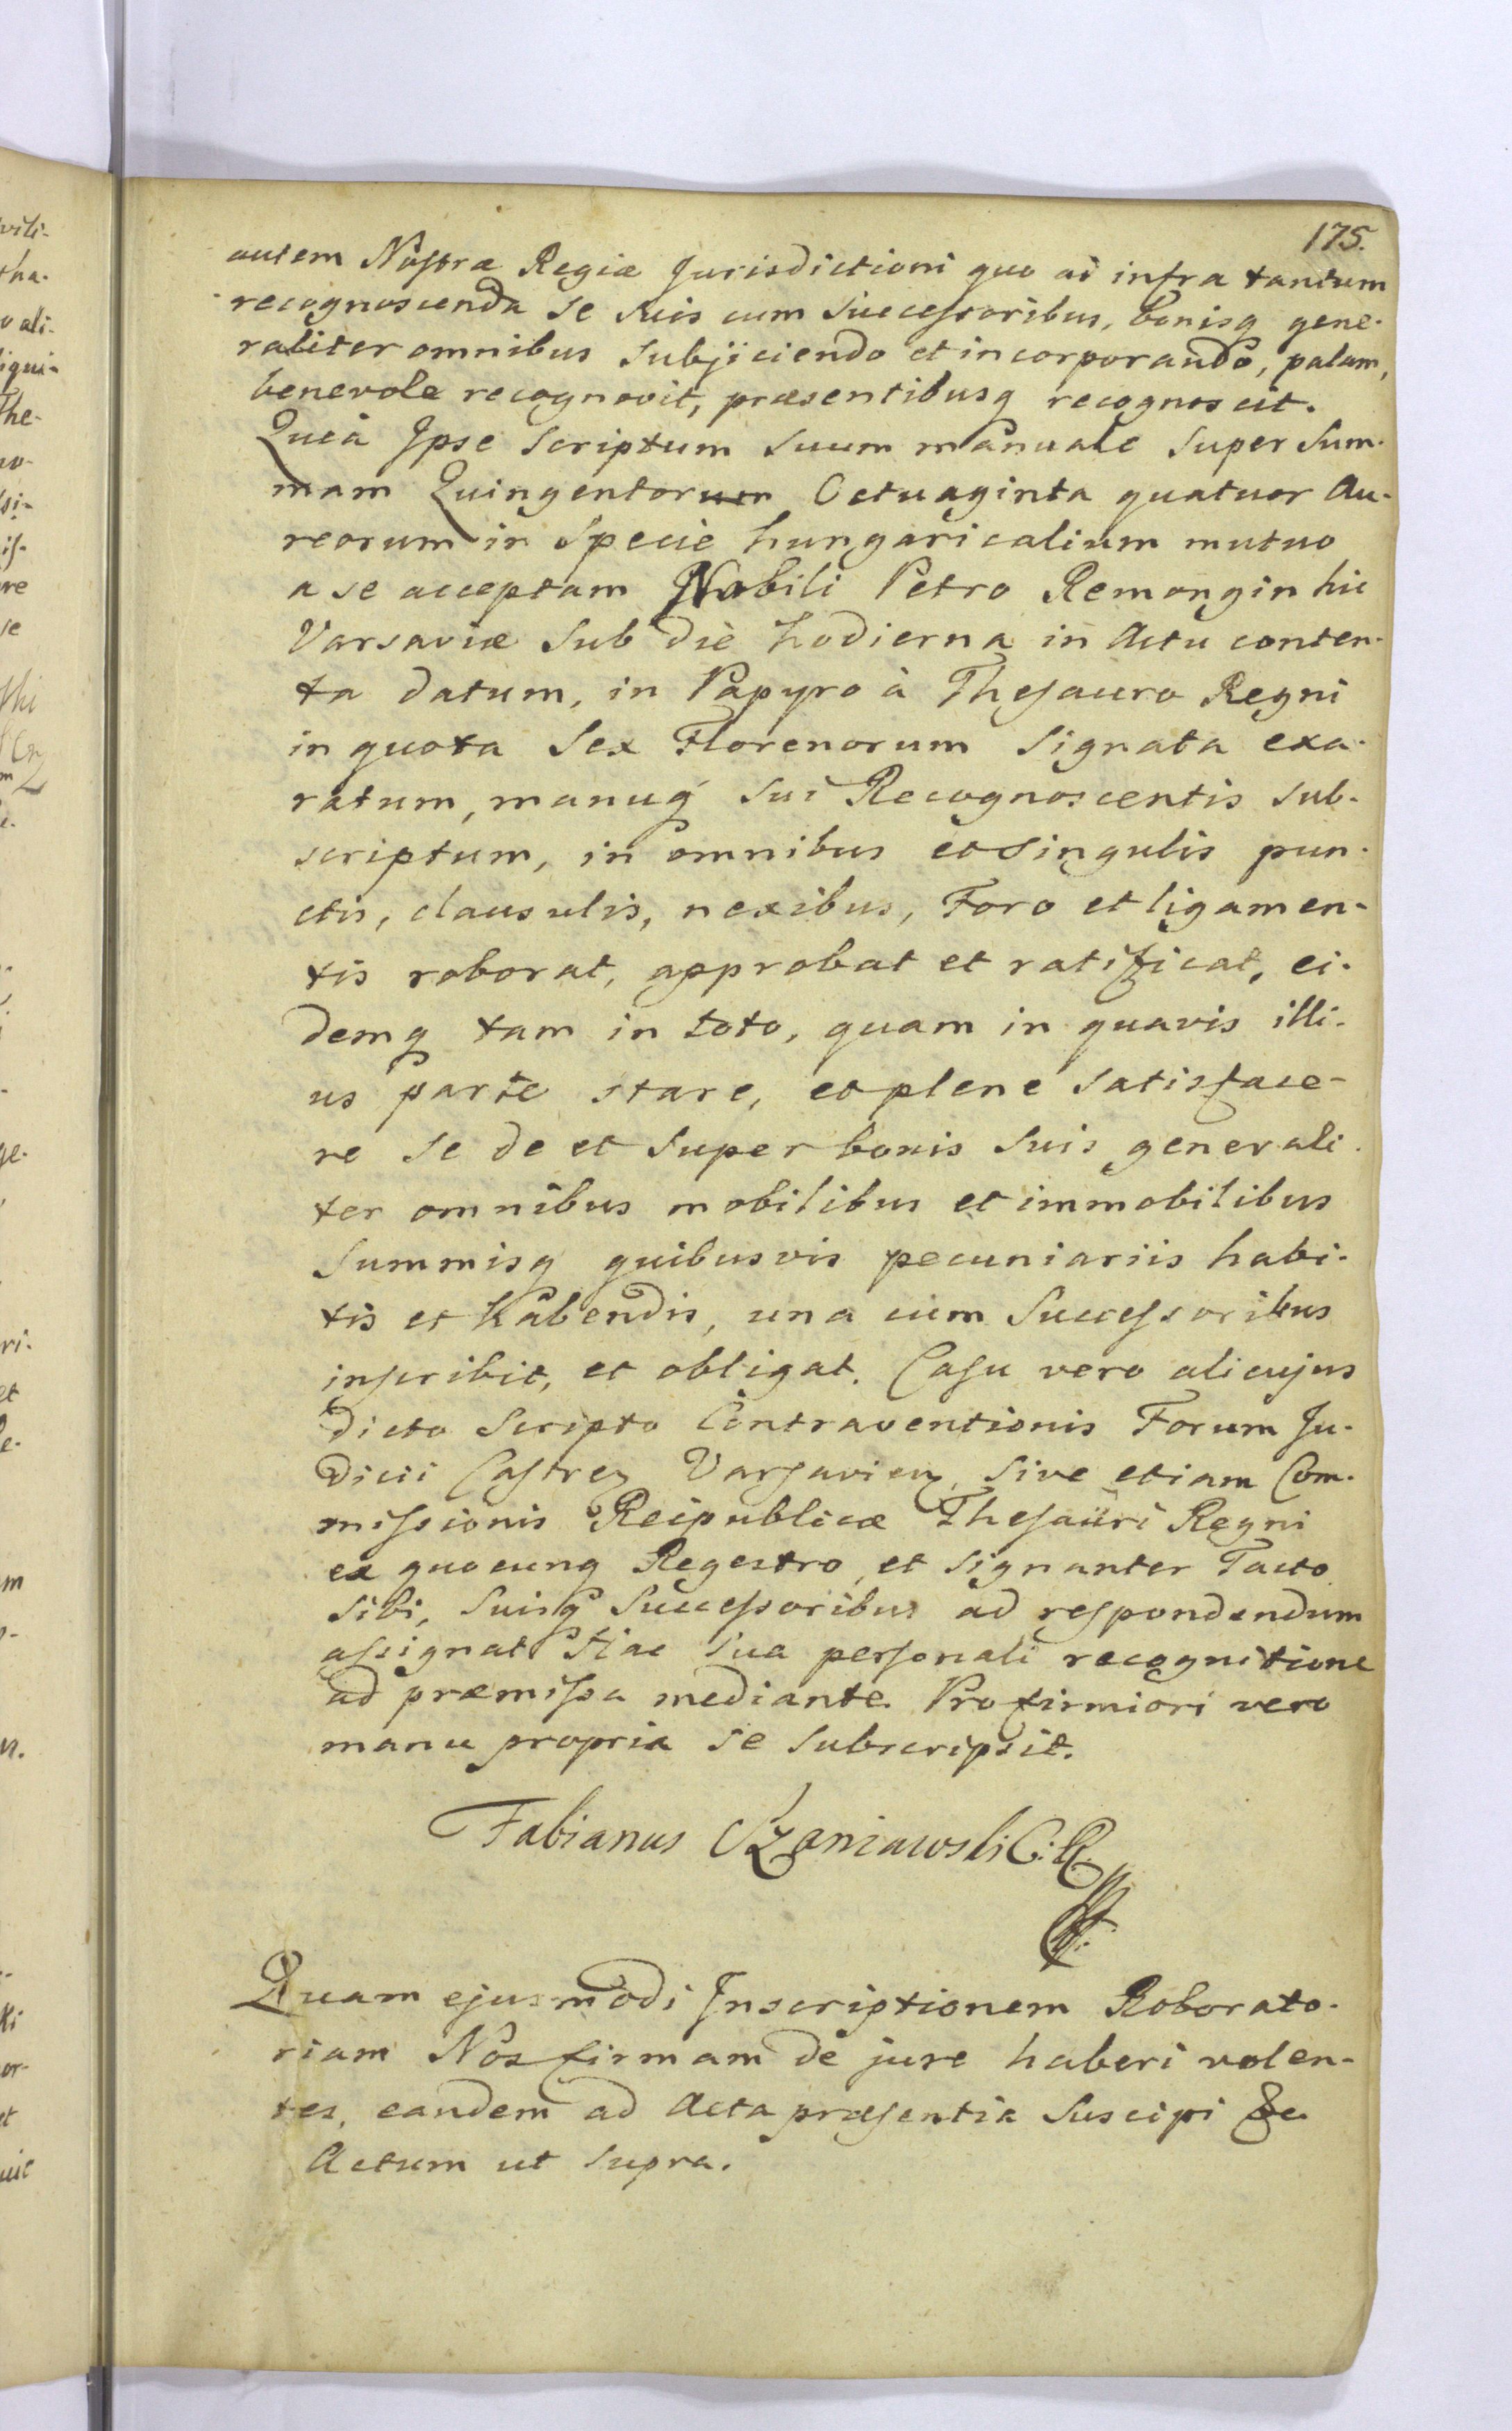 175.
autem Nostræ Regiæ Jurisdictioni quo ad infra tantum
recognoscenda se suis cum successoribus, bonisq gene-
raliter omnibus subjiciendo et incorporando, palam,
benevole recognovit, præsentibusq recognoscit.
Quia Ipse scriptum suum manuale super sum-
mam Quingentorum Octuaginta quatuor Au-
reorum in specie hungaricalium mutuo
a se acceptam Nobili Petro Remongin hic
Varsaviæ sub die hodierna in Actu conten-
ta datum, in Papyro à Thesauro Regni
in quota sex Florenorum signata exa-
ratum, manuq sui Recognoscentis sub-
scriptum, in omnibus et singulis pun-
ctis, clausulis, nexibus, Foro et ligamen-
tis roborat, approbat et ratificat, ei-
demq tam in toto, quam in quavis illi-
us parte stare, et plene satisface-
re se de et super bonis suis generali-
ter omnibus mobilibus et immobilibus
summisq quibusvis pecuniariis habi-
tis et habendis, una cum successoribus
inscribit, et obligat. Casu vero alicujus
dicto scripto Contraventionis Forum Ju-
dicii Castrez Varsavienz, sive etiam Com-
missionis Reipublicæ Thesauri Regni
ex quocunq Regestro, et signanter Tacto
sibi, suisq successoribus ad respondendum
assignat Hac sua personali recognitione
ad præmissa mediante. Pro firmiori vero
manu propria se subscripsit.
Fabianus Szaniawski C: R.
Quam ejusmodi Inscriptionem Roborato-
riam Nos firmam de jure haberi volen-
tes, eandem ad Acta præsentia suscipi &c
Actum ut supra.